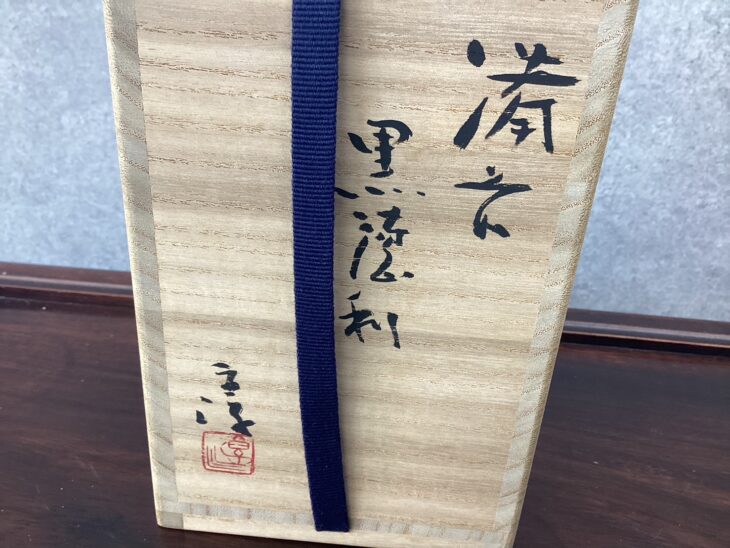 備前
黒徳利
淳